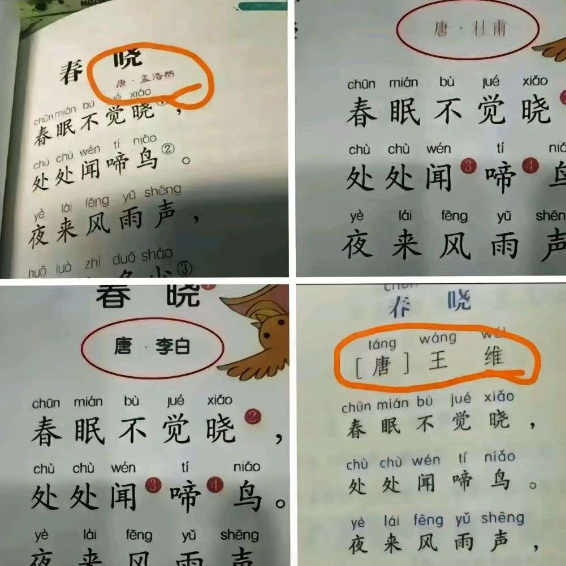 春 晓
唐·孟浩然
chūn mián bù jué xiǎo
春眠不觉晓①，
chù chù wén tí niǎo
处处闻啼鸟②。
yè lái fēng yǔ shēng
夜来风雨声，
huā luò zhī duō shǎo
唐·杜甫
chūn mián bù jué xiǎo
春眠不觉晓
chù chù wén tí
处处闻③啼④鸟
yè lái fēng yǔ shēn
夜来风雨声
春晓
唐·李白
chūn mián bù jué xiǎo
春眠不觉晓②，
chù chù wén tí niǎo
处处闻③啼④鸟。
yè lái fēng yǔ shēng
夜来风雨声，
春 晓
táng wáng wéi
[唐] 王 维
chūn mián bù jué xiǎo
春眠不觉晓，
chù chù wén tí niǎo
处处闻啼鸟。
yè lái fēng yǔ shēng
夜来风雨声，